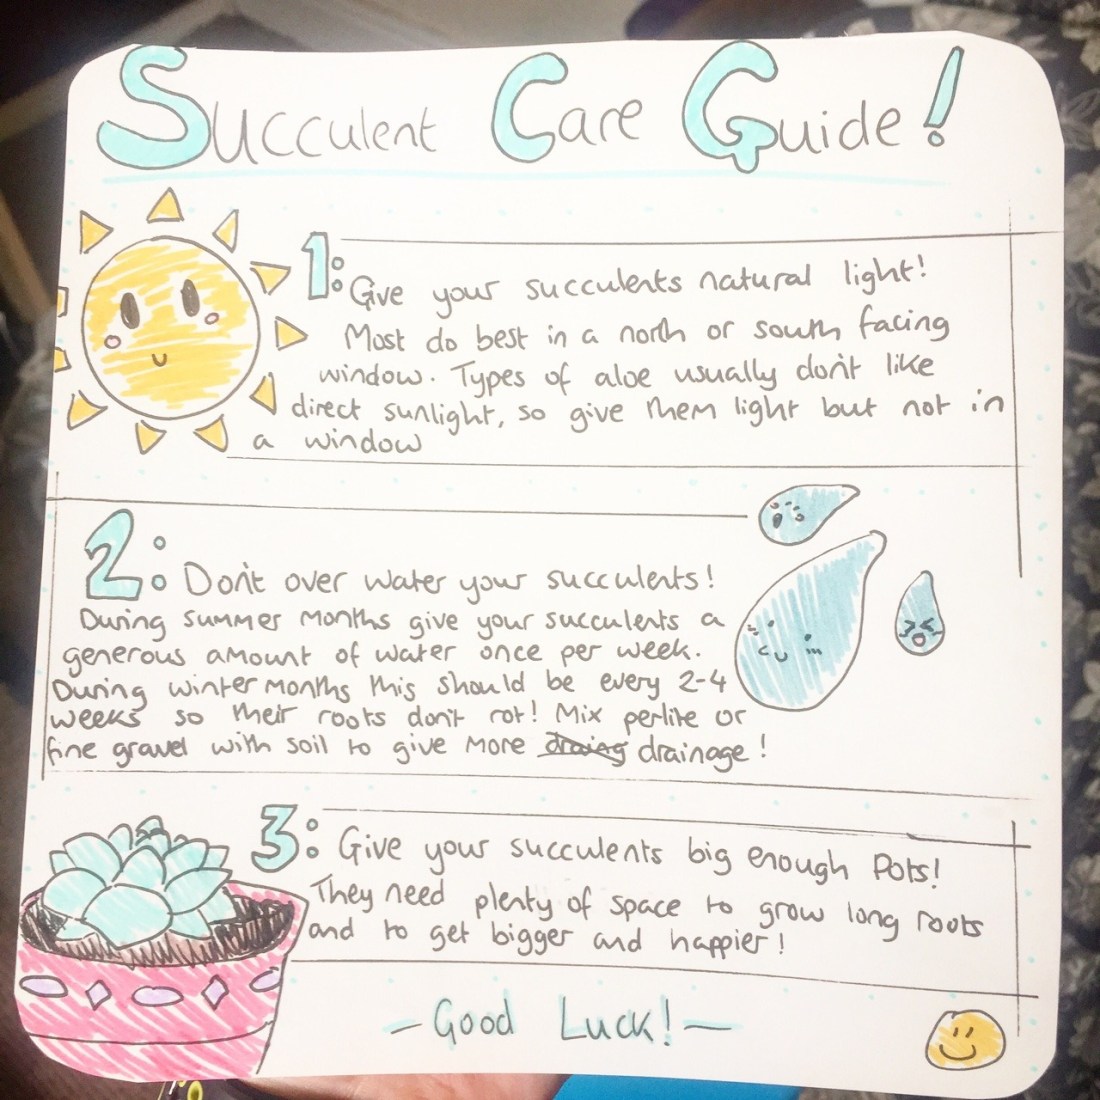 Succulent Care Guide!
1: Give your succulents natural light!
Most do best in a north or south facing
window. Types of aloe usually don't like
direct sunlight, so give them light but not in
a window
2: Don't over water your succulents!
During summer months give your succulents a
generous amount of water once per week.
During winter months this should be every 2-4
weeks so their roots don't rot! Mix perlite or
fine gravel with soil to give more draing drainage!
3: Give your succulents big enough pots!
They need plenty of space to grow long roots
and to get bigger and happier!
- Good Luck! -